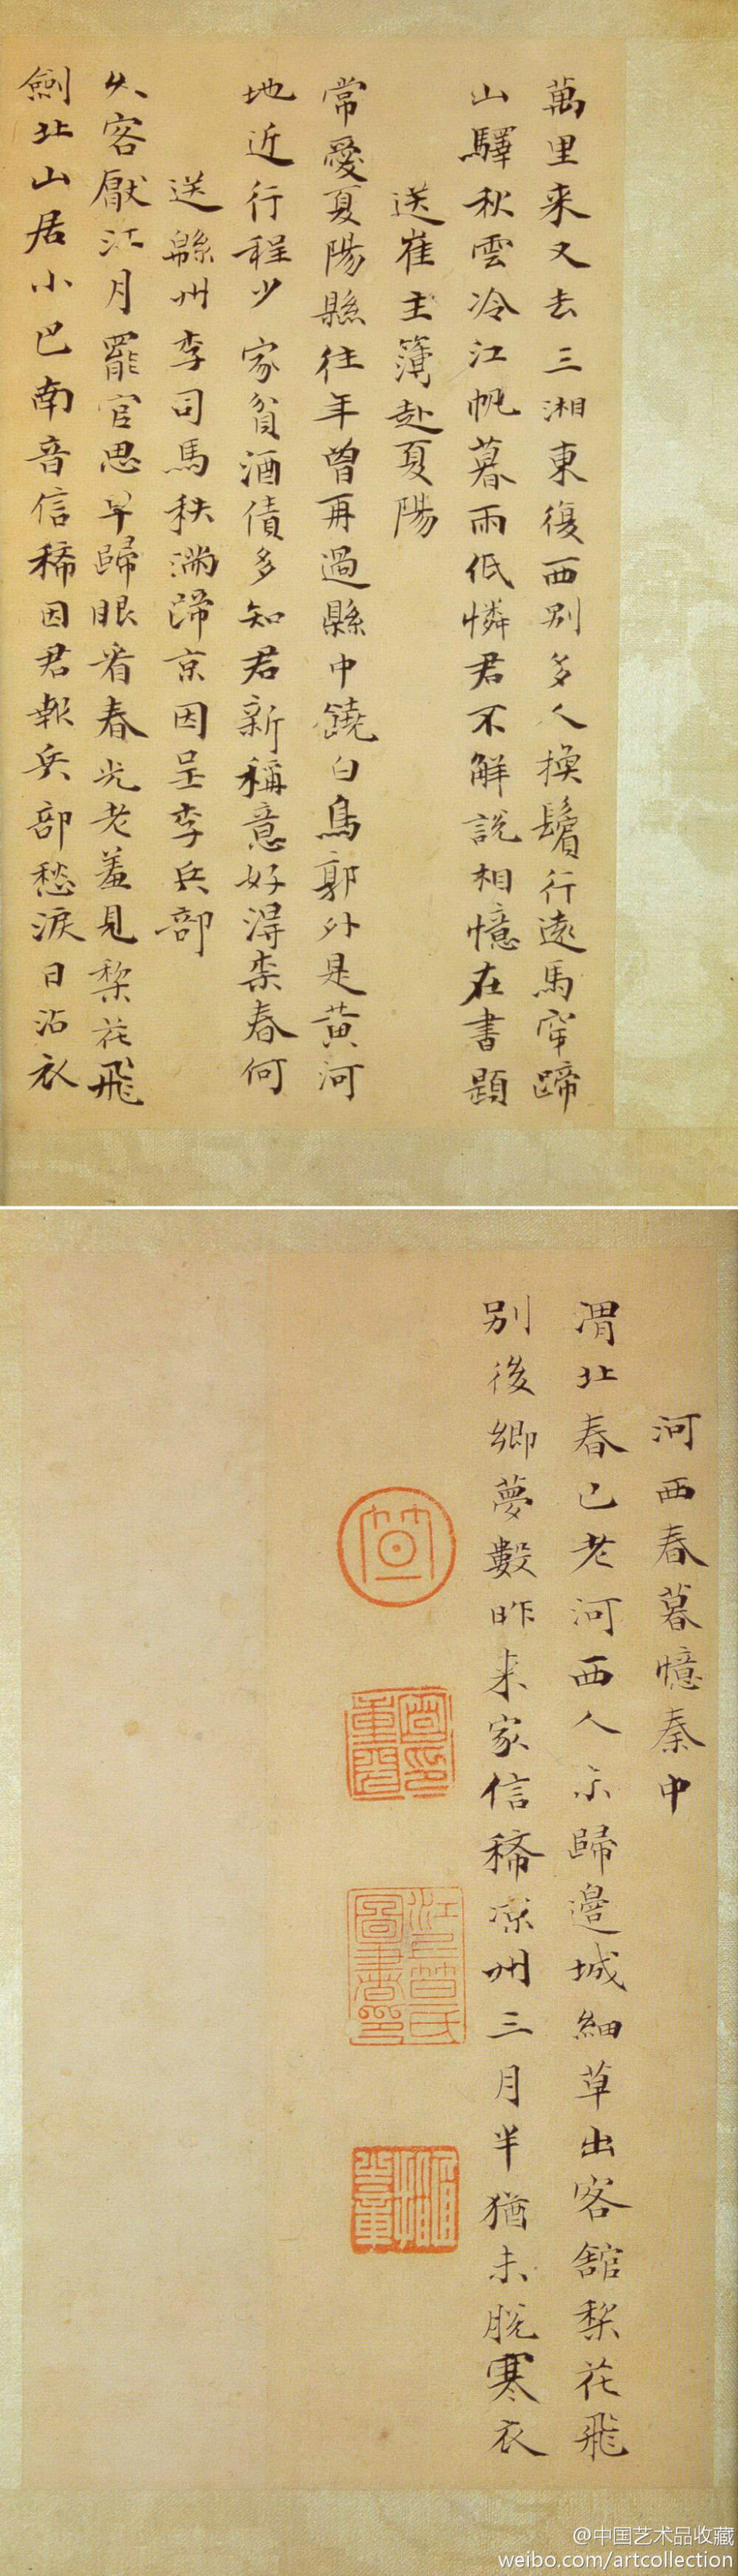 萬里来又去三湘東復西别多人換鬢行遠馬穿蹄
山驛秋雲冷江帆暮雨低憐君不解說相憶在書題
送崔主簿赴夏陽
常愛夏陽縣往年曽再過縣中饒白鳥郭外是黄河
地近行程少家貧酒債多知君新稱意好得柰春何
送緜州李司馬秩満歸京因呈李兵部
久客厭江月罷官思早歸眼看春光老羞見棃花飛
劍北山居小巴南音信稀因君報兵部愁淚日沾衣
河西春暮憶秦中
渭北春已老河西人未歸邉城細草出客舘棃花飛
别後鄉夢數昨来家信稀凉州三月半猶未脱寒衣
笪
笪重光印
江上笪氏圖書印
@中国艺术品收藏
weibo.com/artcollection